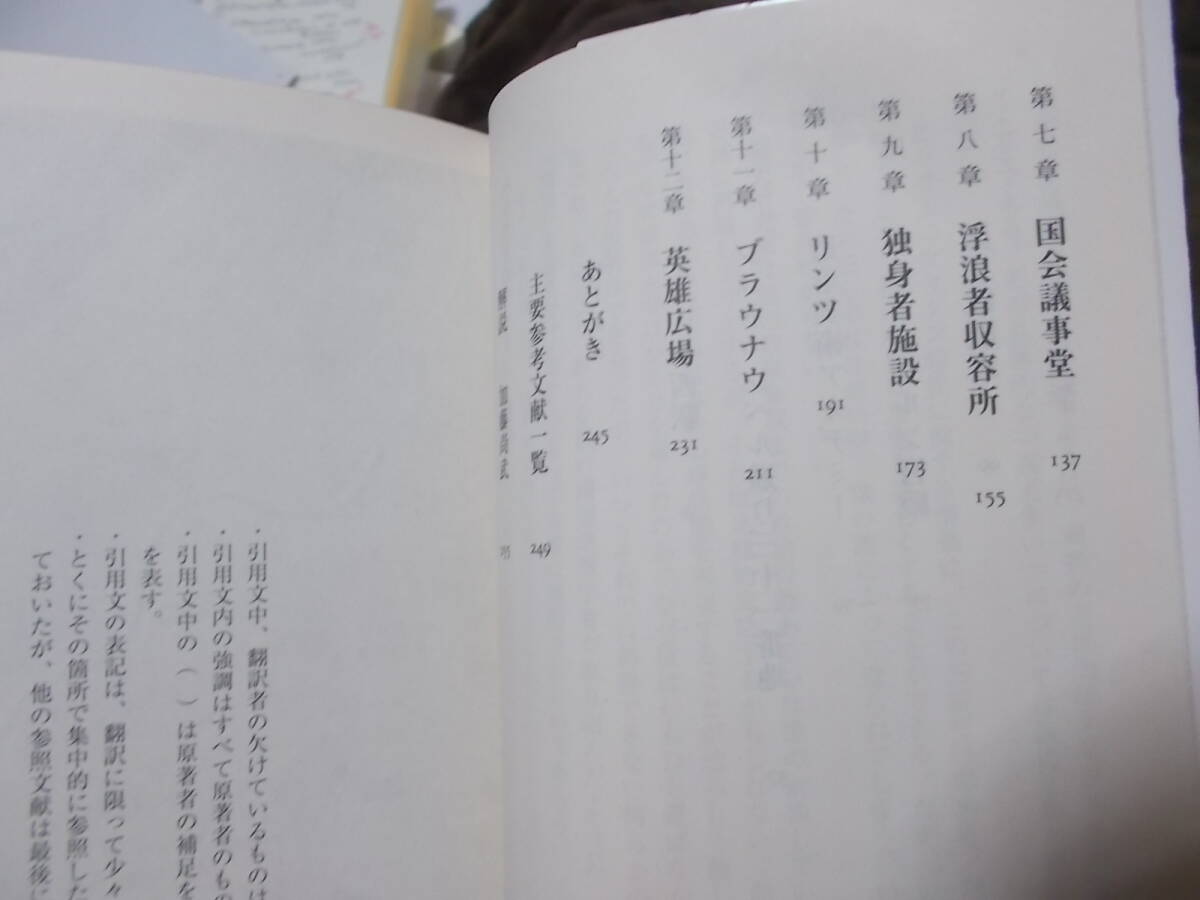 第七章 国会議事堂 137
第八章 浮浪者収容所 155
第九章 独身者施設 173
第十章 リンツ 191
第十一章 ブラウナウ 211
第十二章 英雄広場 231
あとがき 245
主要参考文献一覧 249
解説 加藤尚武
・引用文中、翻訳者の欠けているものは
・引用文内の強調はすべて原著者のもの
・引用文中の（ ）は原著者の補足を
を表す。
・引用文の表記は、翻訳に限って少々
・とくにその箇所で集中的に参照した
ておいたが、他の参照文献は最後に